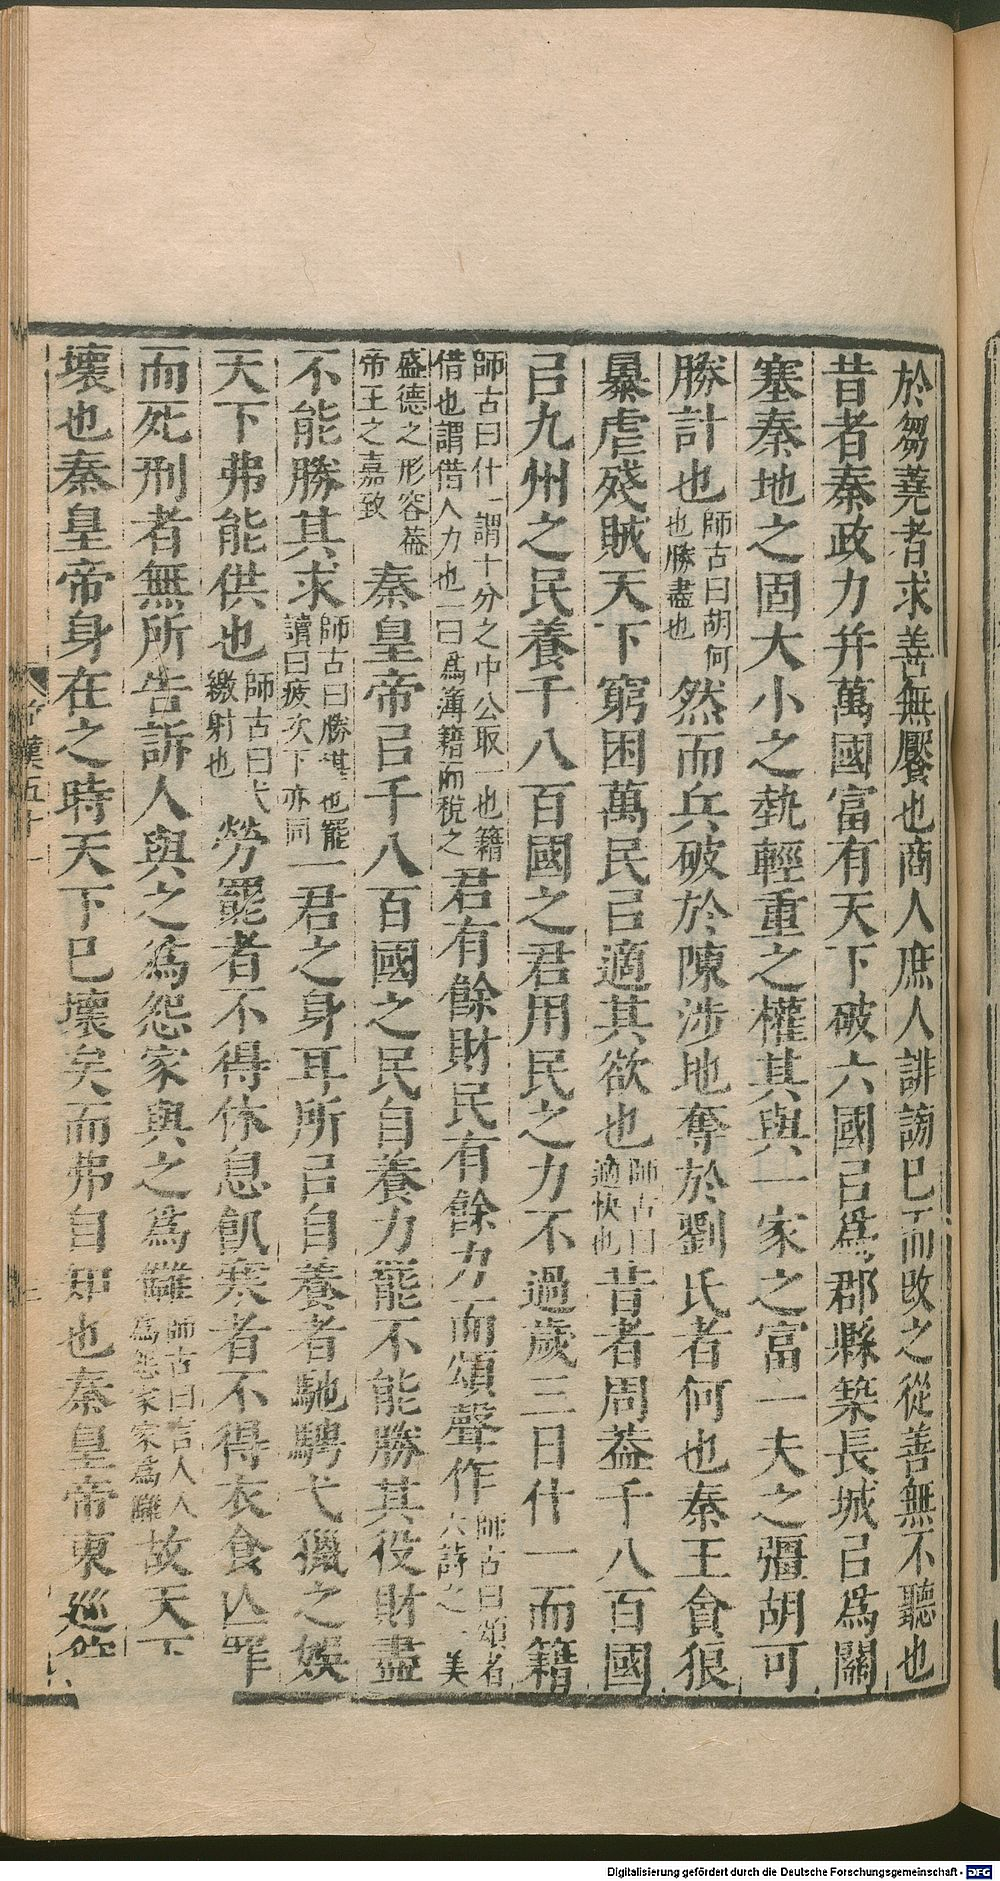 於芻蕘者求善無饜也商人庶人誹謗已而改之從善無不聽也
昔者秦政力并萬國富有天下破六國㠯爲郡縣築長城㠯爲關
塞秦地之固大小之埶輕重之權其與一家之富一夫之彊胡可
勝計也師古曰胡何也勝盡也然而兵破於陳涉地奪於劉氏者何也秦王貪狼
暴虐殘賊天下窮困萬民㠯適其欲也師古曰適快也昔者周葢千八百國
㠯九州之民養千八百國之君用民之力不過歲三日什一而籍
師古曰什一謂十分之中公取一也籍借也謂借人力也一曰爲簿籍而稅之君有餘財民有餘力而頌聲作師古曰頌者六詩之一美
盛德之形容葢帝王之嘉致秦皇帝㠯千八百國之民自養力罷不能勝其役財盡
不能勝其求師古曰勝堪也罷讀曰疲次下亦同一君之身耳所㠯自養者馳騁弋獵之娛
天下弗能供也師古曰弋繳射也勞罷者不得休息飢寒者不得衣食亾罪
而死刑者無所告訴人與之爲怨家與之爲讎師古曰言人人爲怨家家爲讎故天下
壞也秦皇帝身在之時天下已壞矣而弗自知也秦皇帝東巡狩
漢五十一
Digitalisierung gefördert durch die Deutsche Forschungsgemeinschaft - DFG